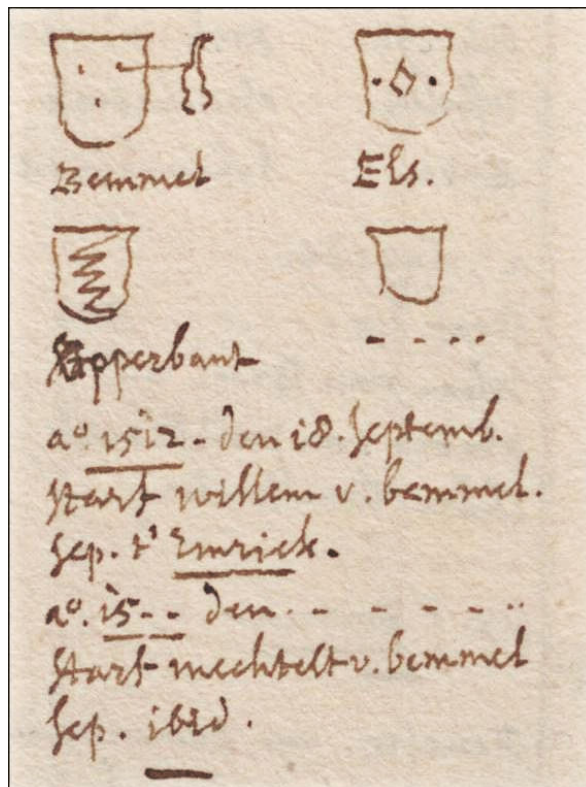 Bemmel Els.
Opperbant - - - -
aº. 1512 - den 18. septemb.
starf willem v. bemmel.
sep. t' Emrick.
aº. 15 - - den - - - - - ..
starf mechtelt v. bemmel
sep. ibid.